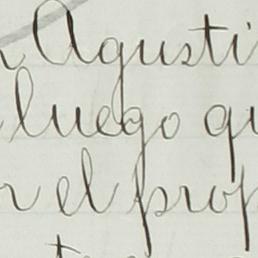 Agusti
luego qu
r el prop